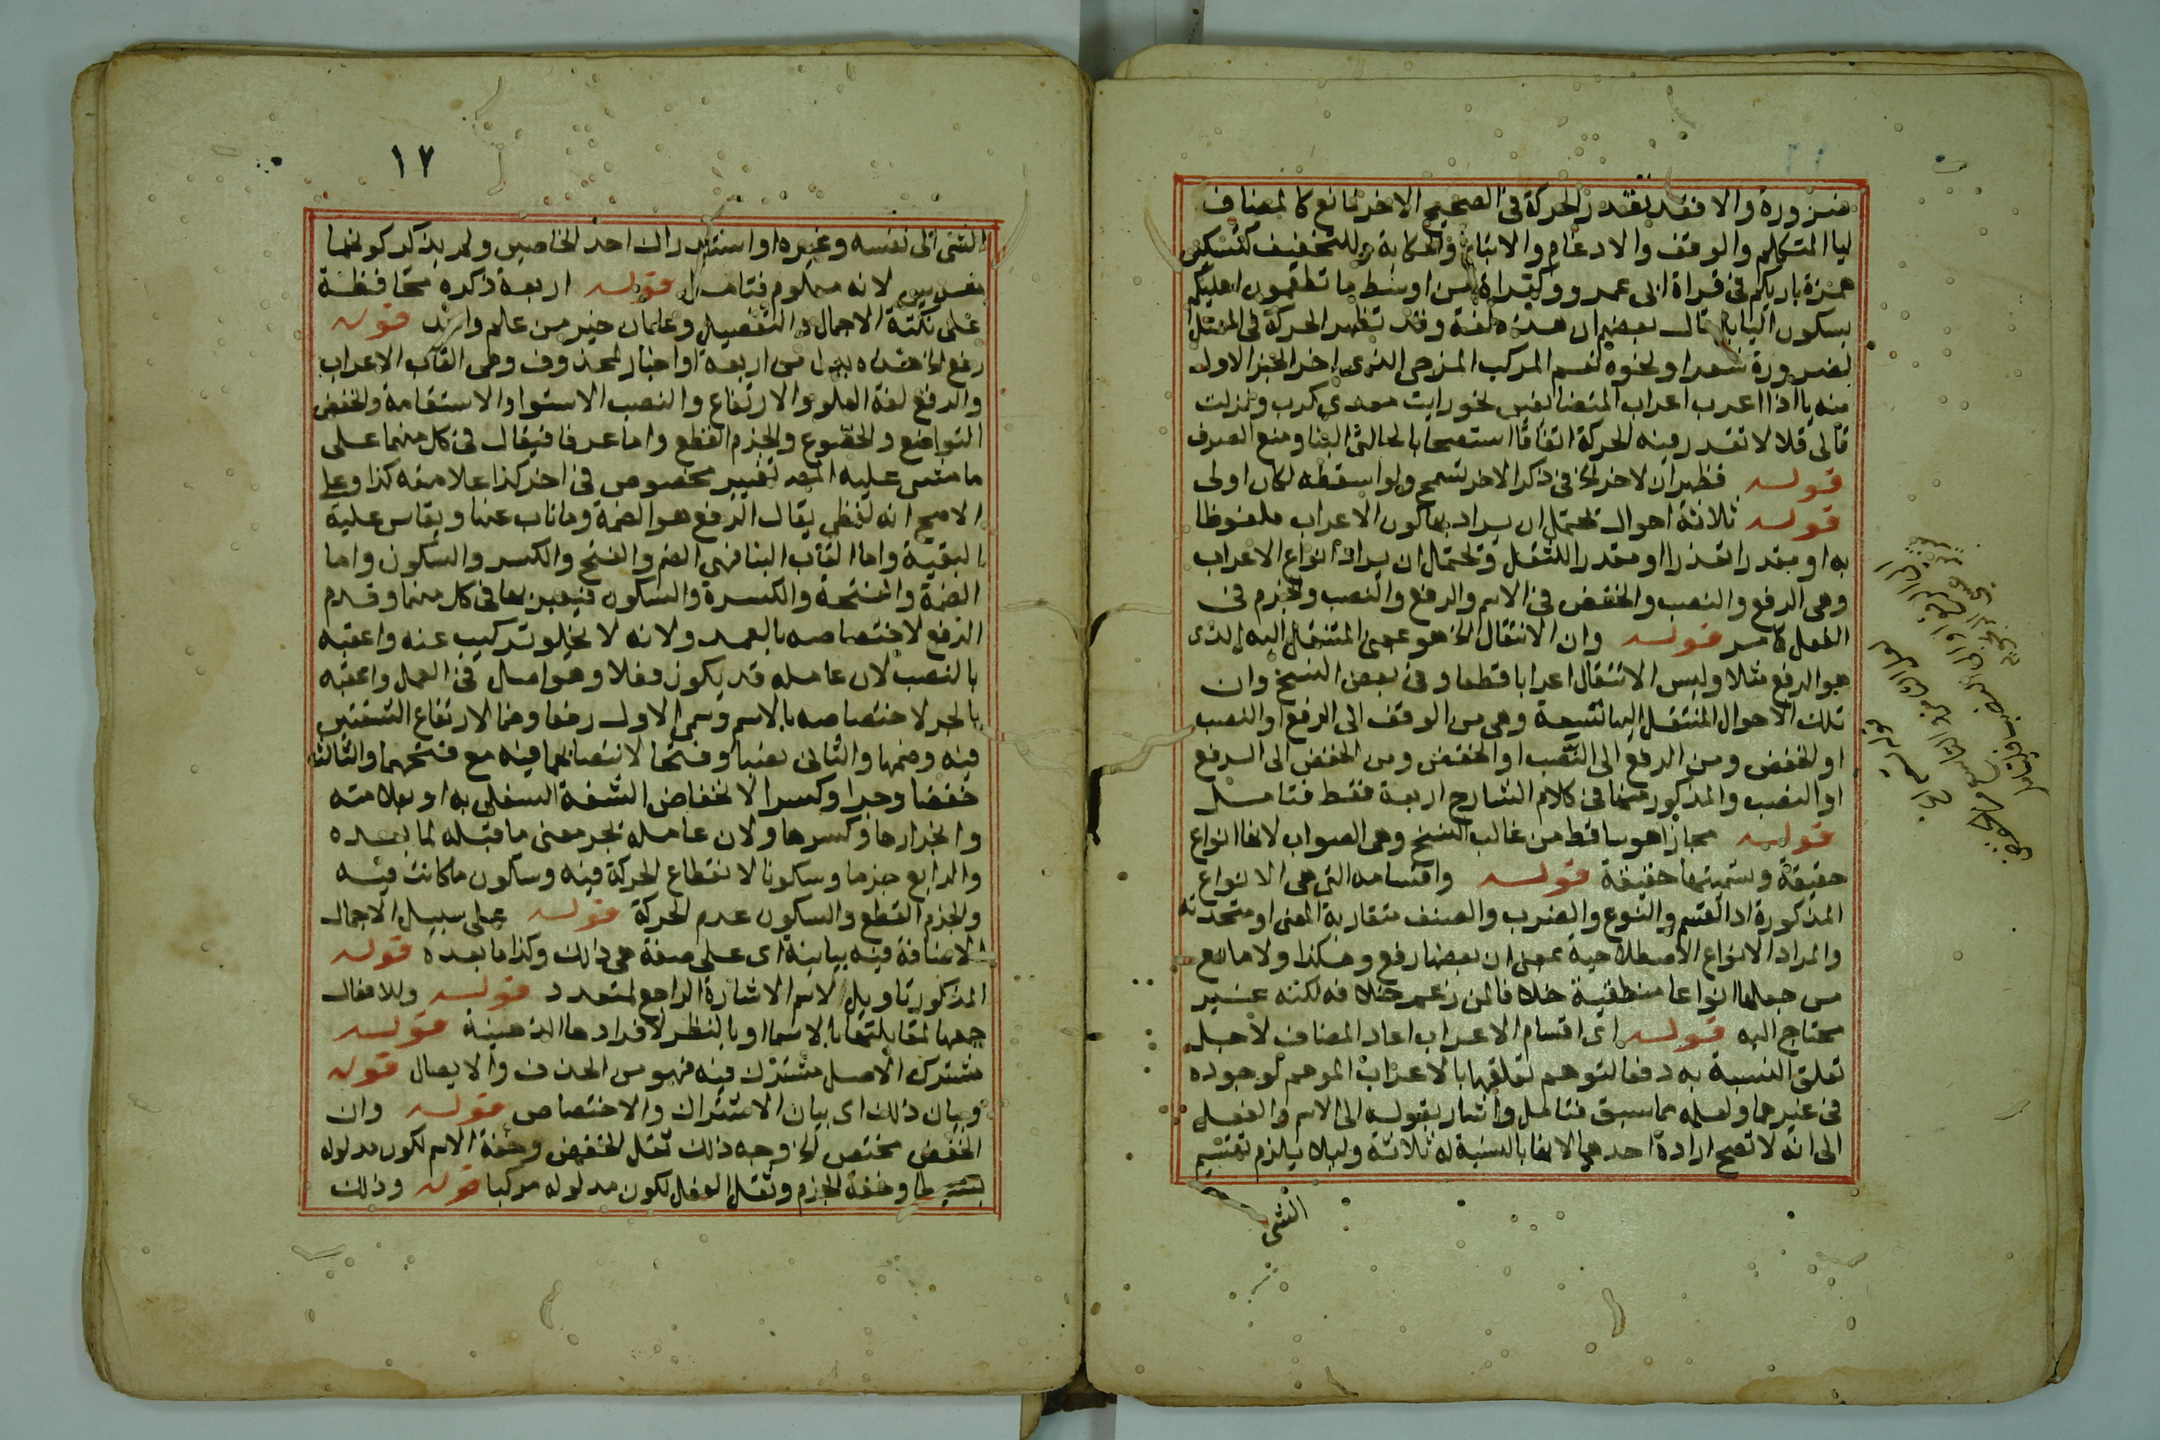 ضرورة والا فقد تقدر الحركة في الصحيح الاخر لمانع كالمضاف
ليا المتكلم والوقف والادغام والاتباع والحكاية وللتخفيف كتسكين
همزة بارئكم في قراة ابى عمرو وكقراة من اوسط ما تطعمون اهليكم
بسكون اليا بل قال بعضهم ان هذه لغة وقد تظهر الحركة في المعتل
لضرورة شعر او نحوه نعم المركب المزجى الذى اخر الجزء الاول
منه يا اذا اعرب اعراب المتضايفين نحو رايت معدى كرب ونزلت
قالى قلا لا تقدر فيه الحركة اتفاقا استصحابا لحالتى البنا ومنع الصرف
قوله فظهر ان لاخر الخ في ذكر الاخر تسمح ولو اسقطه لكان اولى
قوله ثلاثة احوال يحتمل ان يراد بها كون الاعراب ملفوظا
به او مقدرا تعذرا او مقدرا للثقل ويحتمل ان يراد انواع الاعراب
وهى الرفع والنصب والخفض في الاسم والرفع والنصب والجزم في
الفعل كما مر قوله وان الانتقال الخ هو بمعنى المنتقل اليه الذى
هو الرفع مثلا وليس الانتقال اعرابا قطعا وفي بعض النسخ وان
تلك الاحوال المنتقل اليها نتيجة وهى من الوقف الى الرفع او النصب
او الخفض ومن الرفع الى النصب او الخفض ومن الخفض الى الرفع
او النصب والمذكور منها في كلام الشارح اربعة فقط فتامل
قوله مجازا هو ساقط من غالب النسخ وهى الصواب لانها انواع
حقيقة وتسميتها حقيقة قوله واقسامه التى هى الانواع
المذكورة اذ القسم والنوع والضرب والصنف متقاربة المعنى او متحدته
والمراد الانواع الاصطلاحية بمعنى ان بعضها رفع وهكذا ولا مانع
من جعلها انواعا منطقية خلافا لمن زعم خلافه لكنه غير
محتاج اليه قوله اى اقسام الاعراب اعاد المضاف لاجل
تعلق النسبة به دفعا لتوهم تعلقها بالاعراب الموهم لوجوده
في غيرهما ولعله مما سبق فتامل واشار بقوله الى الاسم والفعل
الى انه لا تصح ارادة احدهما لانها بالنسبة له ثلاثة وليلا يلزم تقسيم
الشى
١٧
الشى الى نفسه وغيره او استدراك احد الخاصين ولم يذكر كونها
لانه معلوم فتامل قوله اربعة ذكره محافظة
على نكتة الاجمال والتفصيل وعلمان خير من علم واحد قوله
رفع الخ هذه بدل من اربعة او اخبار لمحذوف وهى القاب الاعراب
والرفع لغة العلو والارتفاع والنصب الاستوا والاستقامة والخفض
التواضع والخضوع والجزم القطع واما عرفا فيقال في كل منها على
ما مشى عليه المص تغيير مخصوص في اخر كذا علامته كذا وعلى
الاصح انه لفظى يقال الرفع هو الضمة وما ناب عنها ويقاس عليه
البقية واما القاب البنا فهى الضم والفتح والكسر والسكون واما
الضمة والفتحة والكسرة والسكون فيعبر بها في كل منها وقدم
الرفع لاختصاصه بالعمد ولانه لا يخلو تركيب عنه واعقبه
بالنصب لان عامله قد يكون فعلا وهو اصل في العمل واعقبه
بالجر لاختصاصه بالاسم وسمى الاول رفعا وضما لارتفاع الشفتين
فيه وضمها والثانى نصبا وفتحا لانتصابهما فيه مع فتحهما والثالث
خفضا وجرا وكسرا لانخفاض الشفة السفلى به او بعلامته
وانجرارها وكسرها ولان عامله يجر معنى ما قبله لما بعده
والرابع جزما وسكونا لانقطاع الحركة فيه وسكون ما كانت فيه
والجزم القطع والسكون عدم الحركة قوله على سبيل الاجمال
الاضافة فيه بيانية اى على صفة هى ذلك وكذا ما بعده قوله
المذكور تاويل لاسم الاشارة الراجع لمتعدد قوله وللافعال
جمعها لمقابلتها بالاسما او بالنظر لافرادها الذهنية قوله
مشترك الاصل مشترك فيه فهو من الحذف والايصال قوله
وبيان ذلك اى بيان الاشتراك والاختصاص قوله وان
الخفض مختص الخ وجه ذلك ثقل الخفض وخفة الاسم لكون مدلوله
بسيطا وخفة الجزم وثقل الفعل لكون مدلوله مركبا قوله وذلك